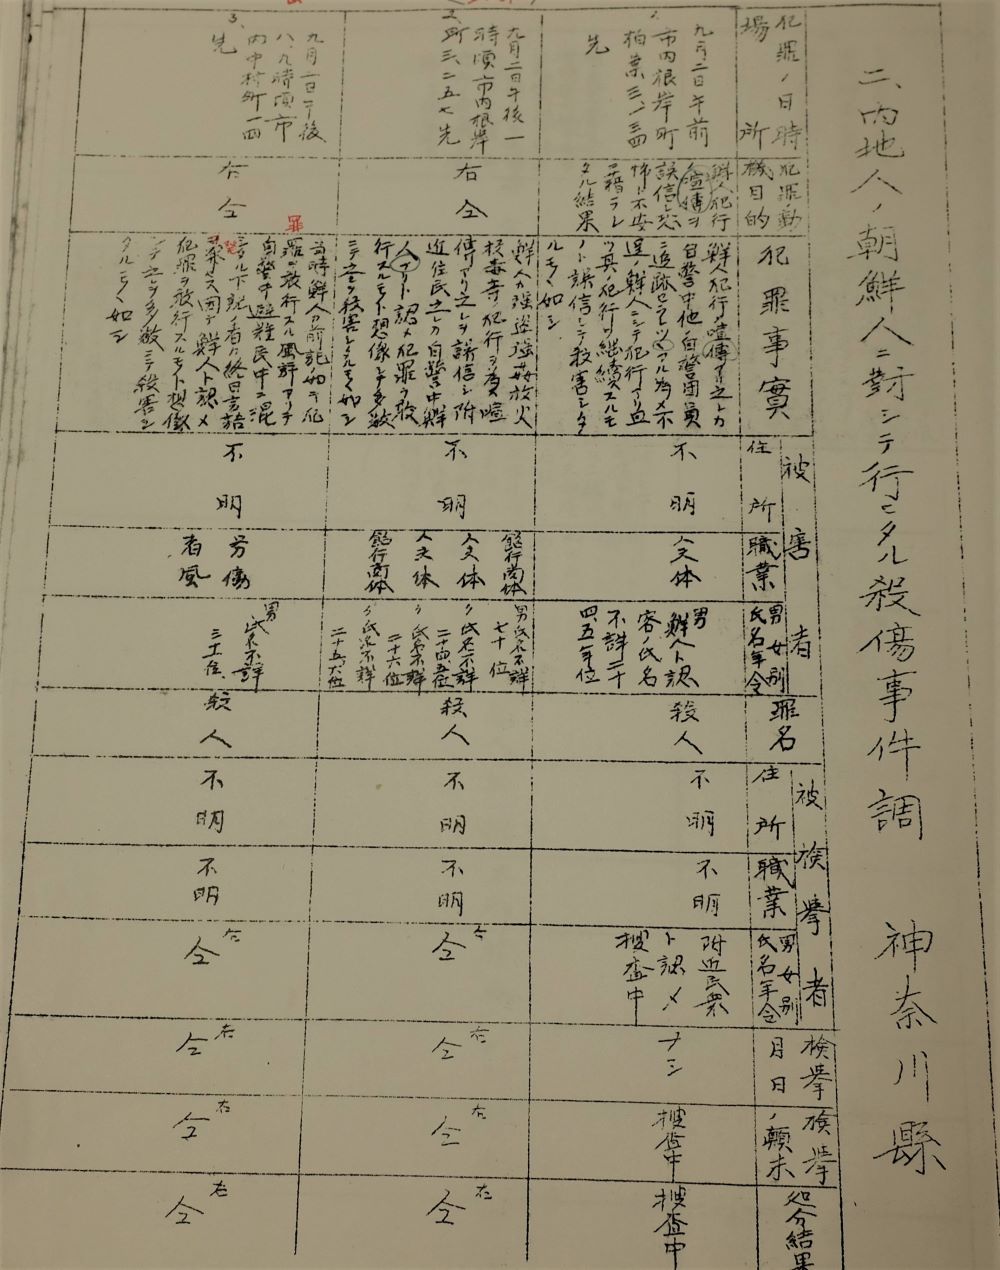 二、内地人ノ朝鮮人ニ対シテ行ヒタル殺傷事件調 神奈川縣
犯罪ノ日時
場所
犯罪ノ動
機目的
犯罪事實
被害者
住所
職業
男女別
氏名年令
罪名
被検挙者
住所
職業
男女別
氏名年令
検挙
月日
検挙
ノ顛末
処分結果
1、
九月二日午前
市内根岸町
柏葉三、三四
先
鮮人犯行
ノ喧傳ヲ
誤信シ恐
怖ト不安
ニ藉ラレ
タル結果
鮮人犯行ノ喧傳アリ之レカ
自警中他自警団員
ニ追跡
ノ鮮人ニシテ犯行アリ
其ノ犯行ヲ継續スルモ
ノト誤信シテ殺害シタ
ルモノヽ如シ
不明
人夫体
男
鮮人ト認
客ノ氏名
不詳二十
四、五年位
殺人
不明
不明
附近民衆
ト認メ
捜査中
ナシ
捜査中
捜査中
2、
九月二日午後一
時頃市内根岸
町三、二五七先
右仝
鮮人カ強盗強姦放火
投毒等ノ犯行ヲ為ス喧
傳アリ之レヲ誤信シ附
近住民之レカ自警中鮮
人ナリト認メ犯罪ヲ敢
行スルモノト想像シテ多数
ニテ之ヲ殺害シタルモノヽ如シ
不明
飴行商体
人夫体
人夫体
飴行商体
男氏名不詳
七十位
〃氏名不詳
二十四、五位
〃氏名不詳
二十六位
〃氏名不詳
二十五、六位
殺人
不明
不明
右仝
右仝
右仝
右仝
3、
九月二日午後
八、九時頃市
内中村町一四
先
右仝
罪
当時鮮人カ前記ノ如キ犯
罪ヲ敢行スル風評アリテ
自警中避難民中ニ混
言語
ヲ発セス因テ鮮人ト認メ
犯罪ヲ敢行スルモノト想像
シテ之レヲ多数ニテ殺害シ
タルモノヽ如シ
不明
労働
者風
男
氏名不詳
三十位
殺人
不明
不明
右仝
右仝
右仝
右仝